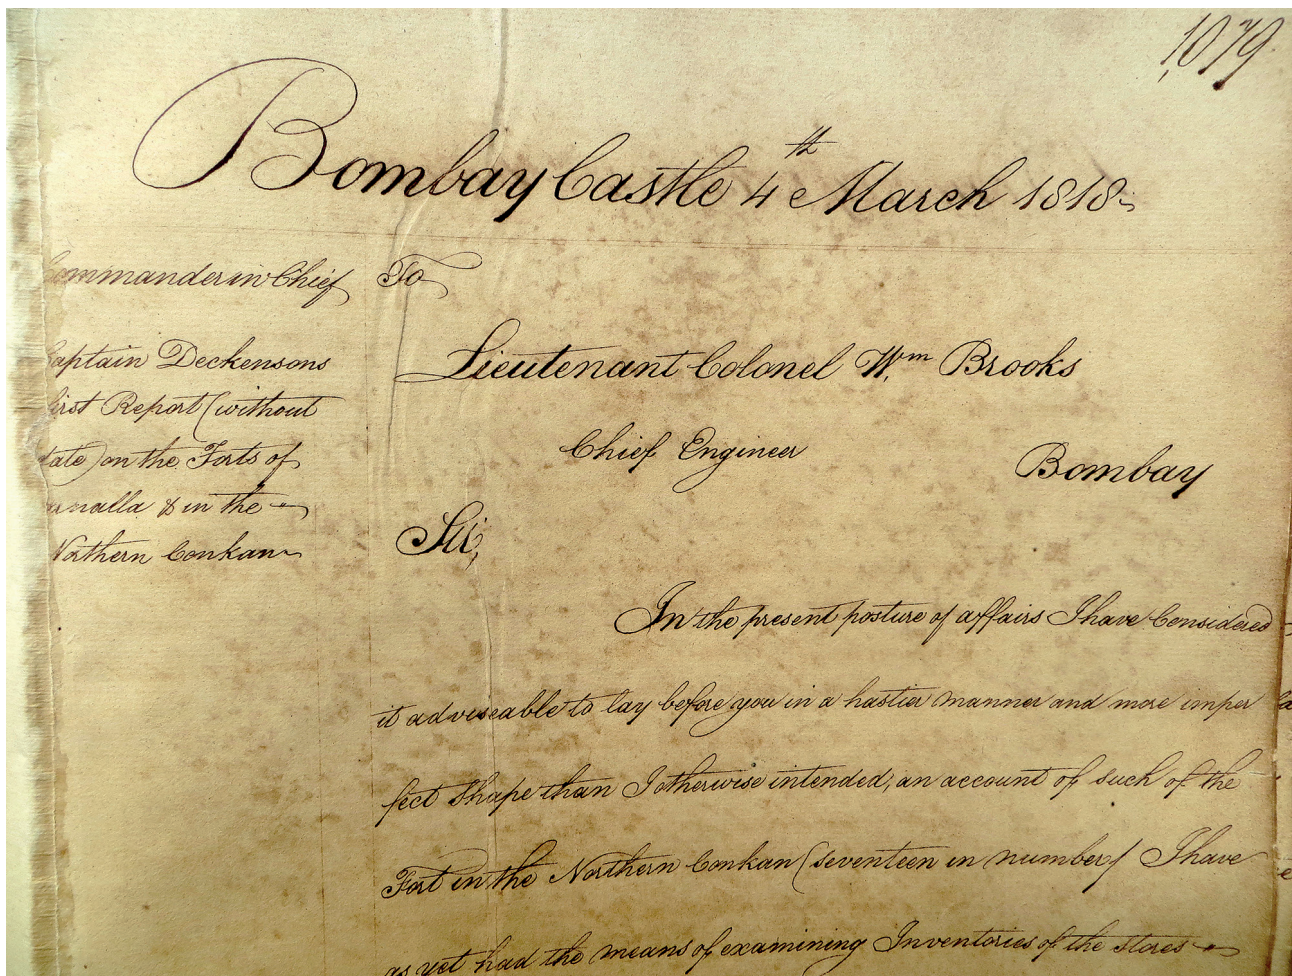 1079
Bombay Castle 4th March 1818
Commander in Chief
Captain Deckensons
first Report (without
date) on the Forts of
& in the
Northern Conkan
To
Lieutenant Colonel Wm Brooks
Chief Engineer
Bombay
Sir,
In the present posture of affairs I have Considered
it adviseable to lay before you in a hastier manner and more imper
fect Shape than I otherwise intended, an account of such of the
Fort in the Northern Conkan (seventeen in number) I have
as yet had the means of examining Inventories of the stores